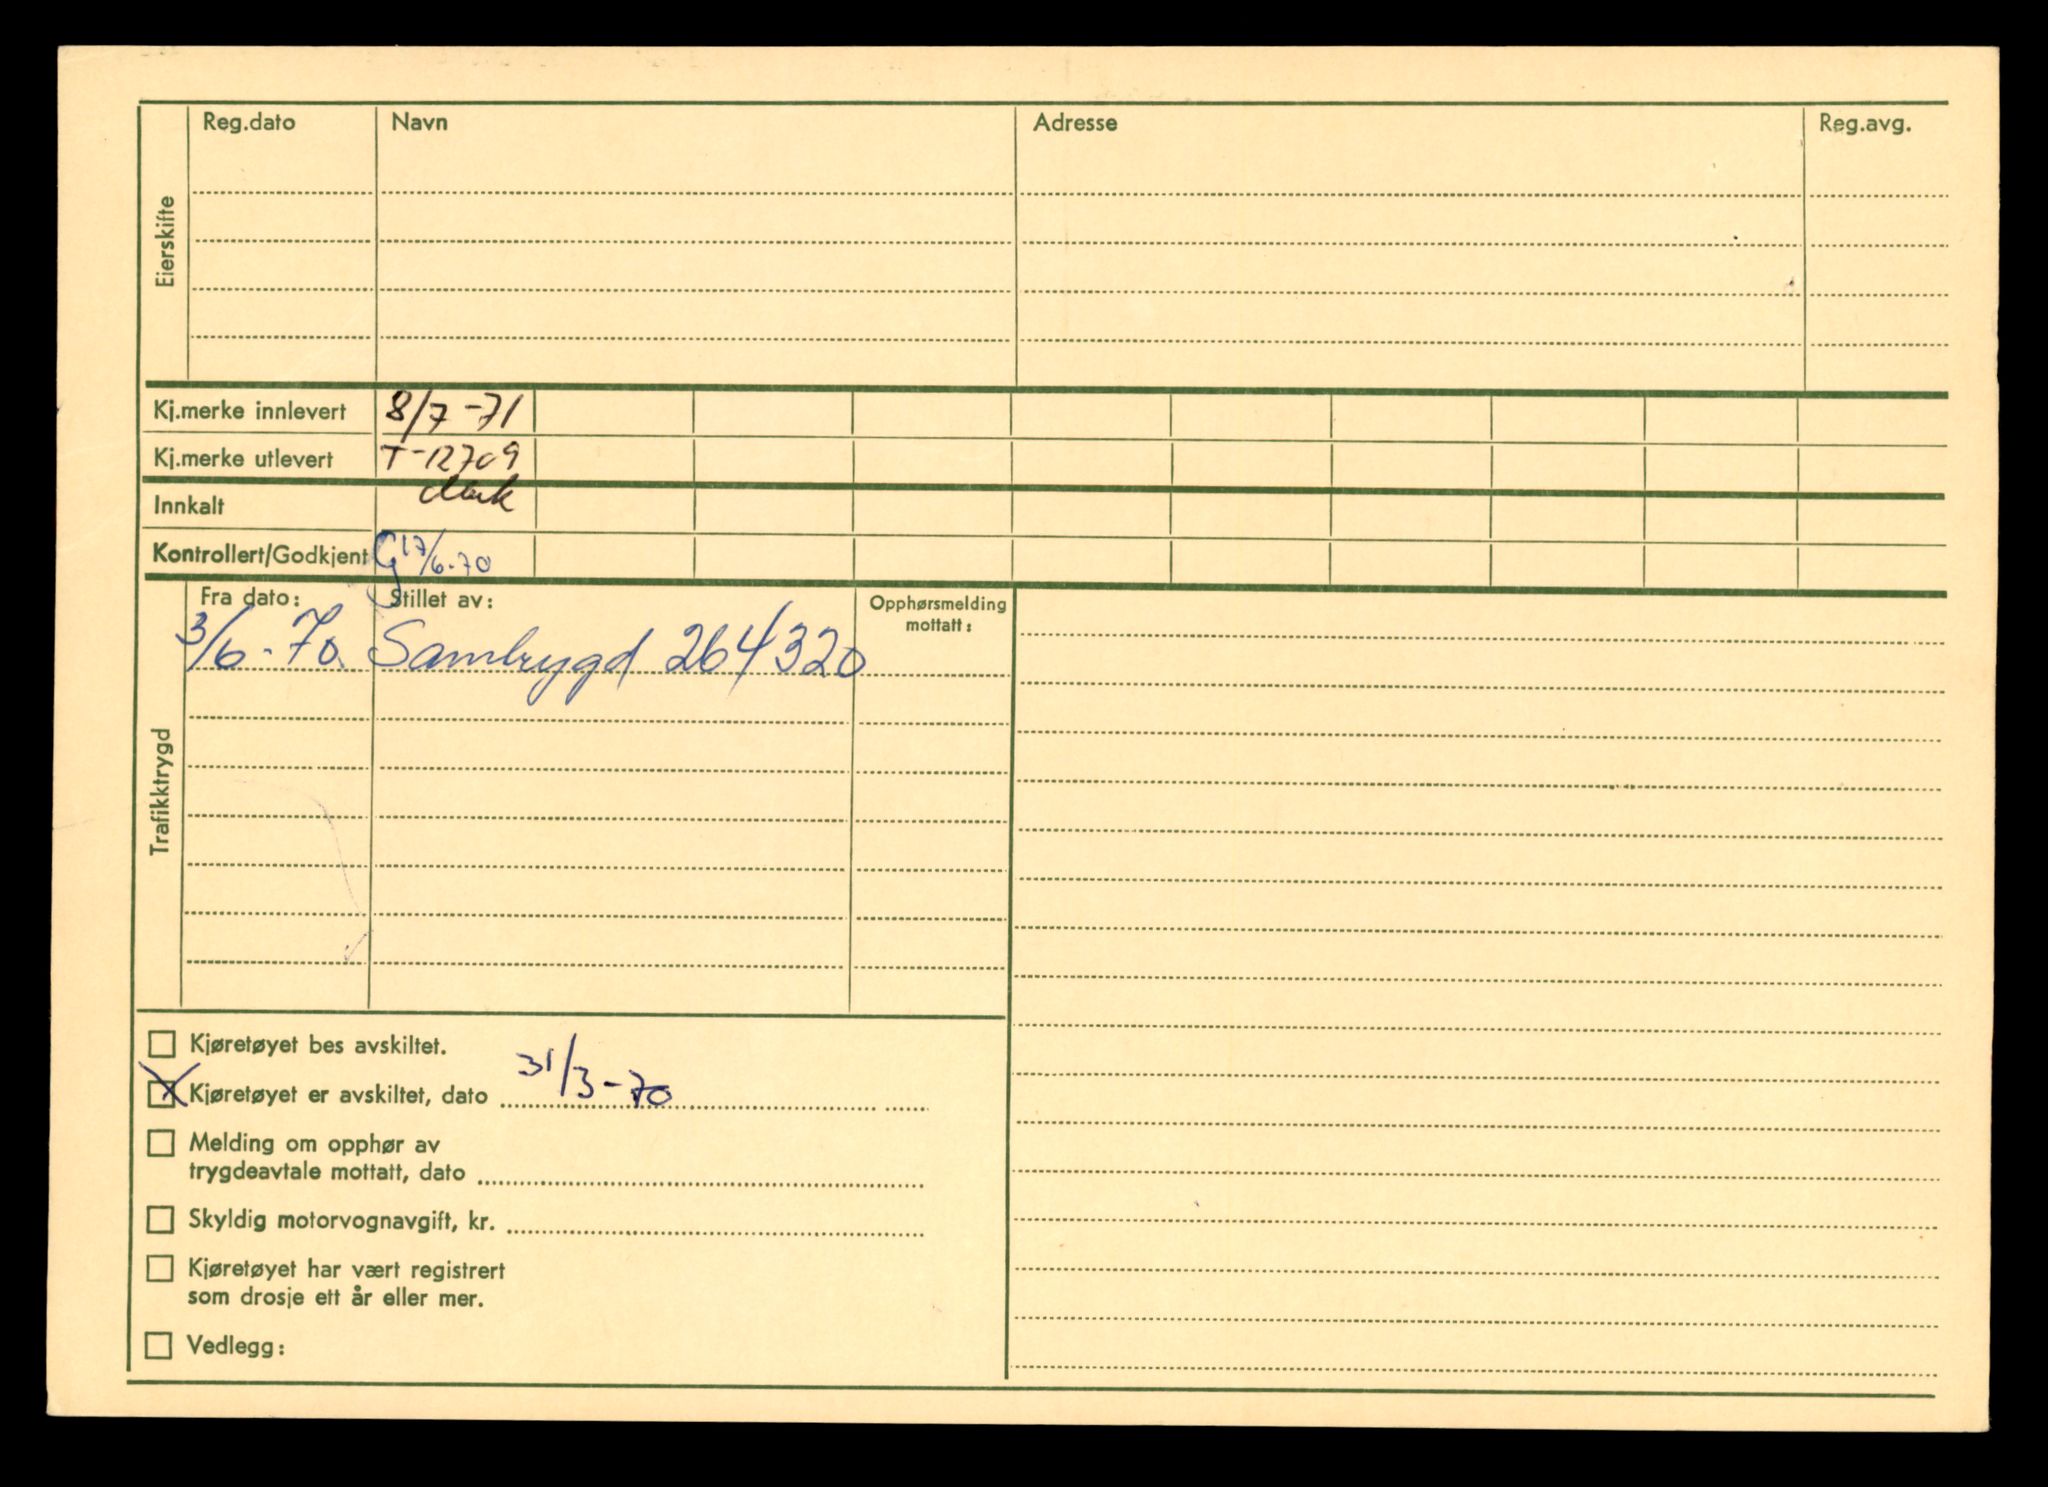 Eierskifte
Reg.dato Navn Adresse Reg.avg.
Kj.merke innlevert 8/7-71
Kj.merke utlevert T-12709
Innkalt
Kontrollert/Godkjent G 17/6-70
Trafikktrygd
Fra dato: Stillet av: Opphørsmelding
mottatt:
3/6-70. Samtrygd 264320
Kjøretøyet bes avskiltet.
X Kjøretøyet er avskiltet, dato 31/3-70
Melding om opphør av
trygdeavtale mottatt, dato
Skyldig motorvognavgift, kr.
Kjøretøyet har vært registrert
som drosje ett år eller mer.
Vedlegg: